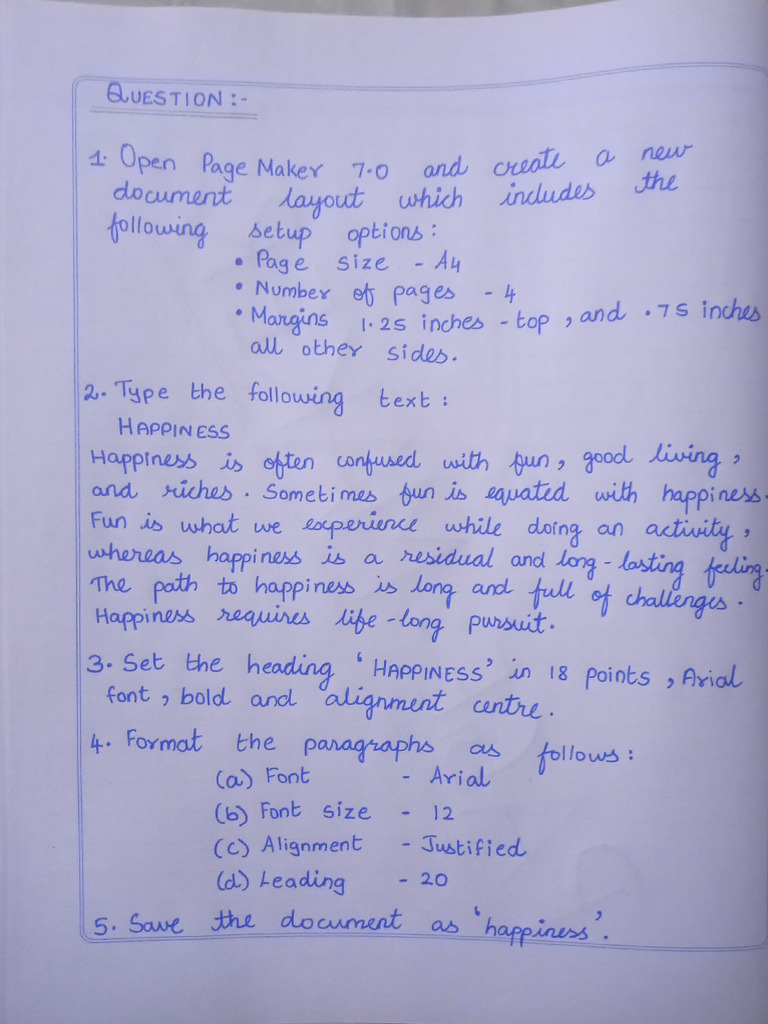 QUESTION :-
1. Open PageMaker 7.0 and create a new
document layout which includes the
following setup options :
• Page size - A4
• Number of pages - 4
• Margins 1.25 inches - top , and .75 inches
all other sides.
2. Type the following text :
HAPPINESS
Happiness is often confused with fun, good living ,
and riches . Sometimes fun is equated with happiness.
Fun is what we experience while doing an activity ,
whereas happiness is a residual and long-lasting feeling.
The path to happiness is long and full of challenges .
Happiness requires life-long pursuit.
3. Set the heading 'HAPPINESS' in 18 points , Arial
font , bold and alignment centre.
4. Format the paragraphs as follows :
(a) Font - Arial
(b) Font size - 12
(c) Alignment - Justified
(d) Leading - 20
5. Save the document as 'happiness'.